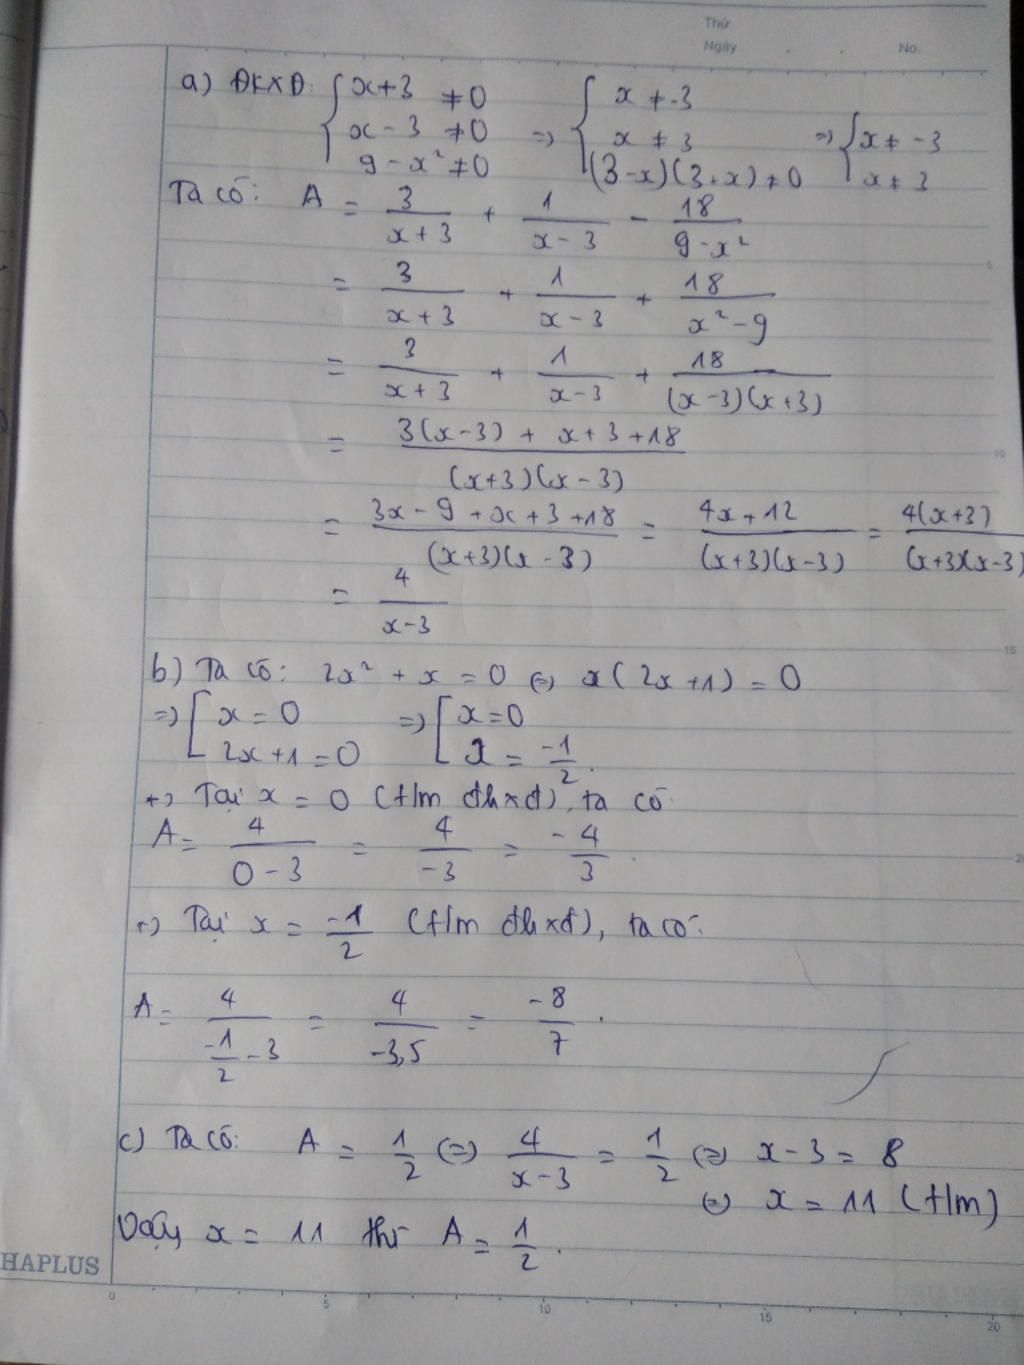 Thứ
Ngày . . No.
a) ĐKXĐ: { x+3 ≠0 { x ≠ -3
x - 3 ≠0 => x ≠ 3 => { x ≠ -3
9 - x² ≠0 (3-x)(3+x) ≠ 0 x ≠ 3
Ta có: A = 3/(x+3) + 1/(x-3) - 18/(9-x²)
= 3/(x+3) + 1/(x-3) + 18/(x²-9)
= 3/(x+3) + 1/(x-3) + 18/((x-3)(x+3))
= (3(x-3) + x+3+18)/((x+3)(x-3))
= (3x-9+x+3+18)/((x+3)(x-3)) = (4x+12)/((x+3)(x-3)) = 4(x+3)/((x+3)(x-3))
= 4/(x-3)
b) Ta có: 2x² + x = 0 (=) x(2x+1) = 0
=> [ x = 0 => [ x=0
2x+1=0 x = -1/2.
+) Tại x = 0 (t/m đkxđ), ta có:
A = 4/(0-3) = 4/-3 = -4/3.
+) Tại x = -1/2 (t/m đkxđ), ta có:
A = 4/(-1/2 - 3) = 4/-3,5 = -8/7.
c) Ta có: A = 1/2 (=) 4/(x-3) = 1/2 (=) x-3 = 8
(=) x = 11 (t/m)
Vậy x = 11 thì A = 1/2.
HAPLUS
0 5 10 15 20
5
10
15
20